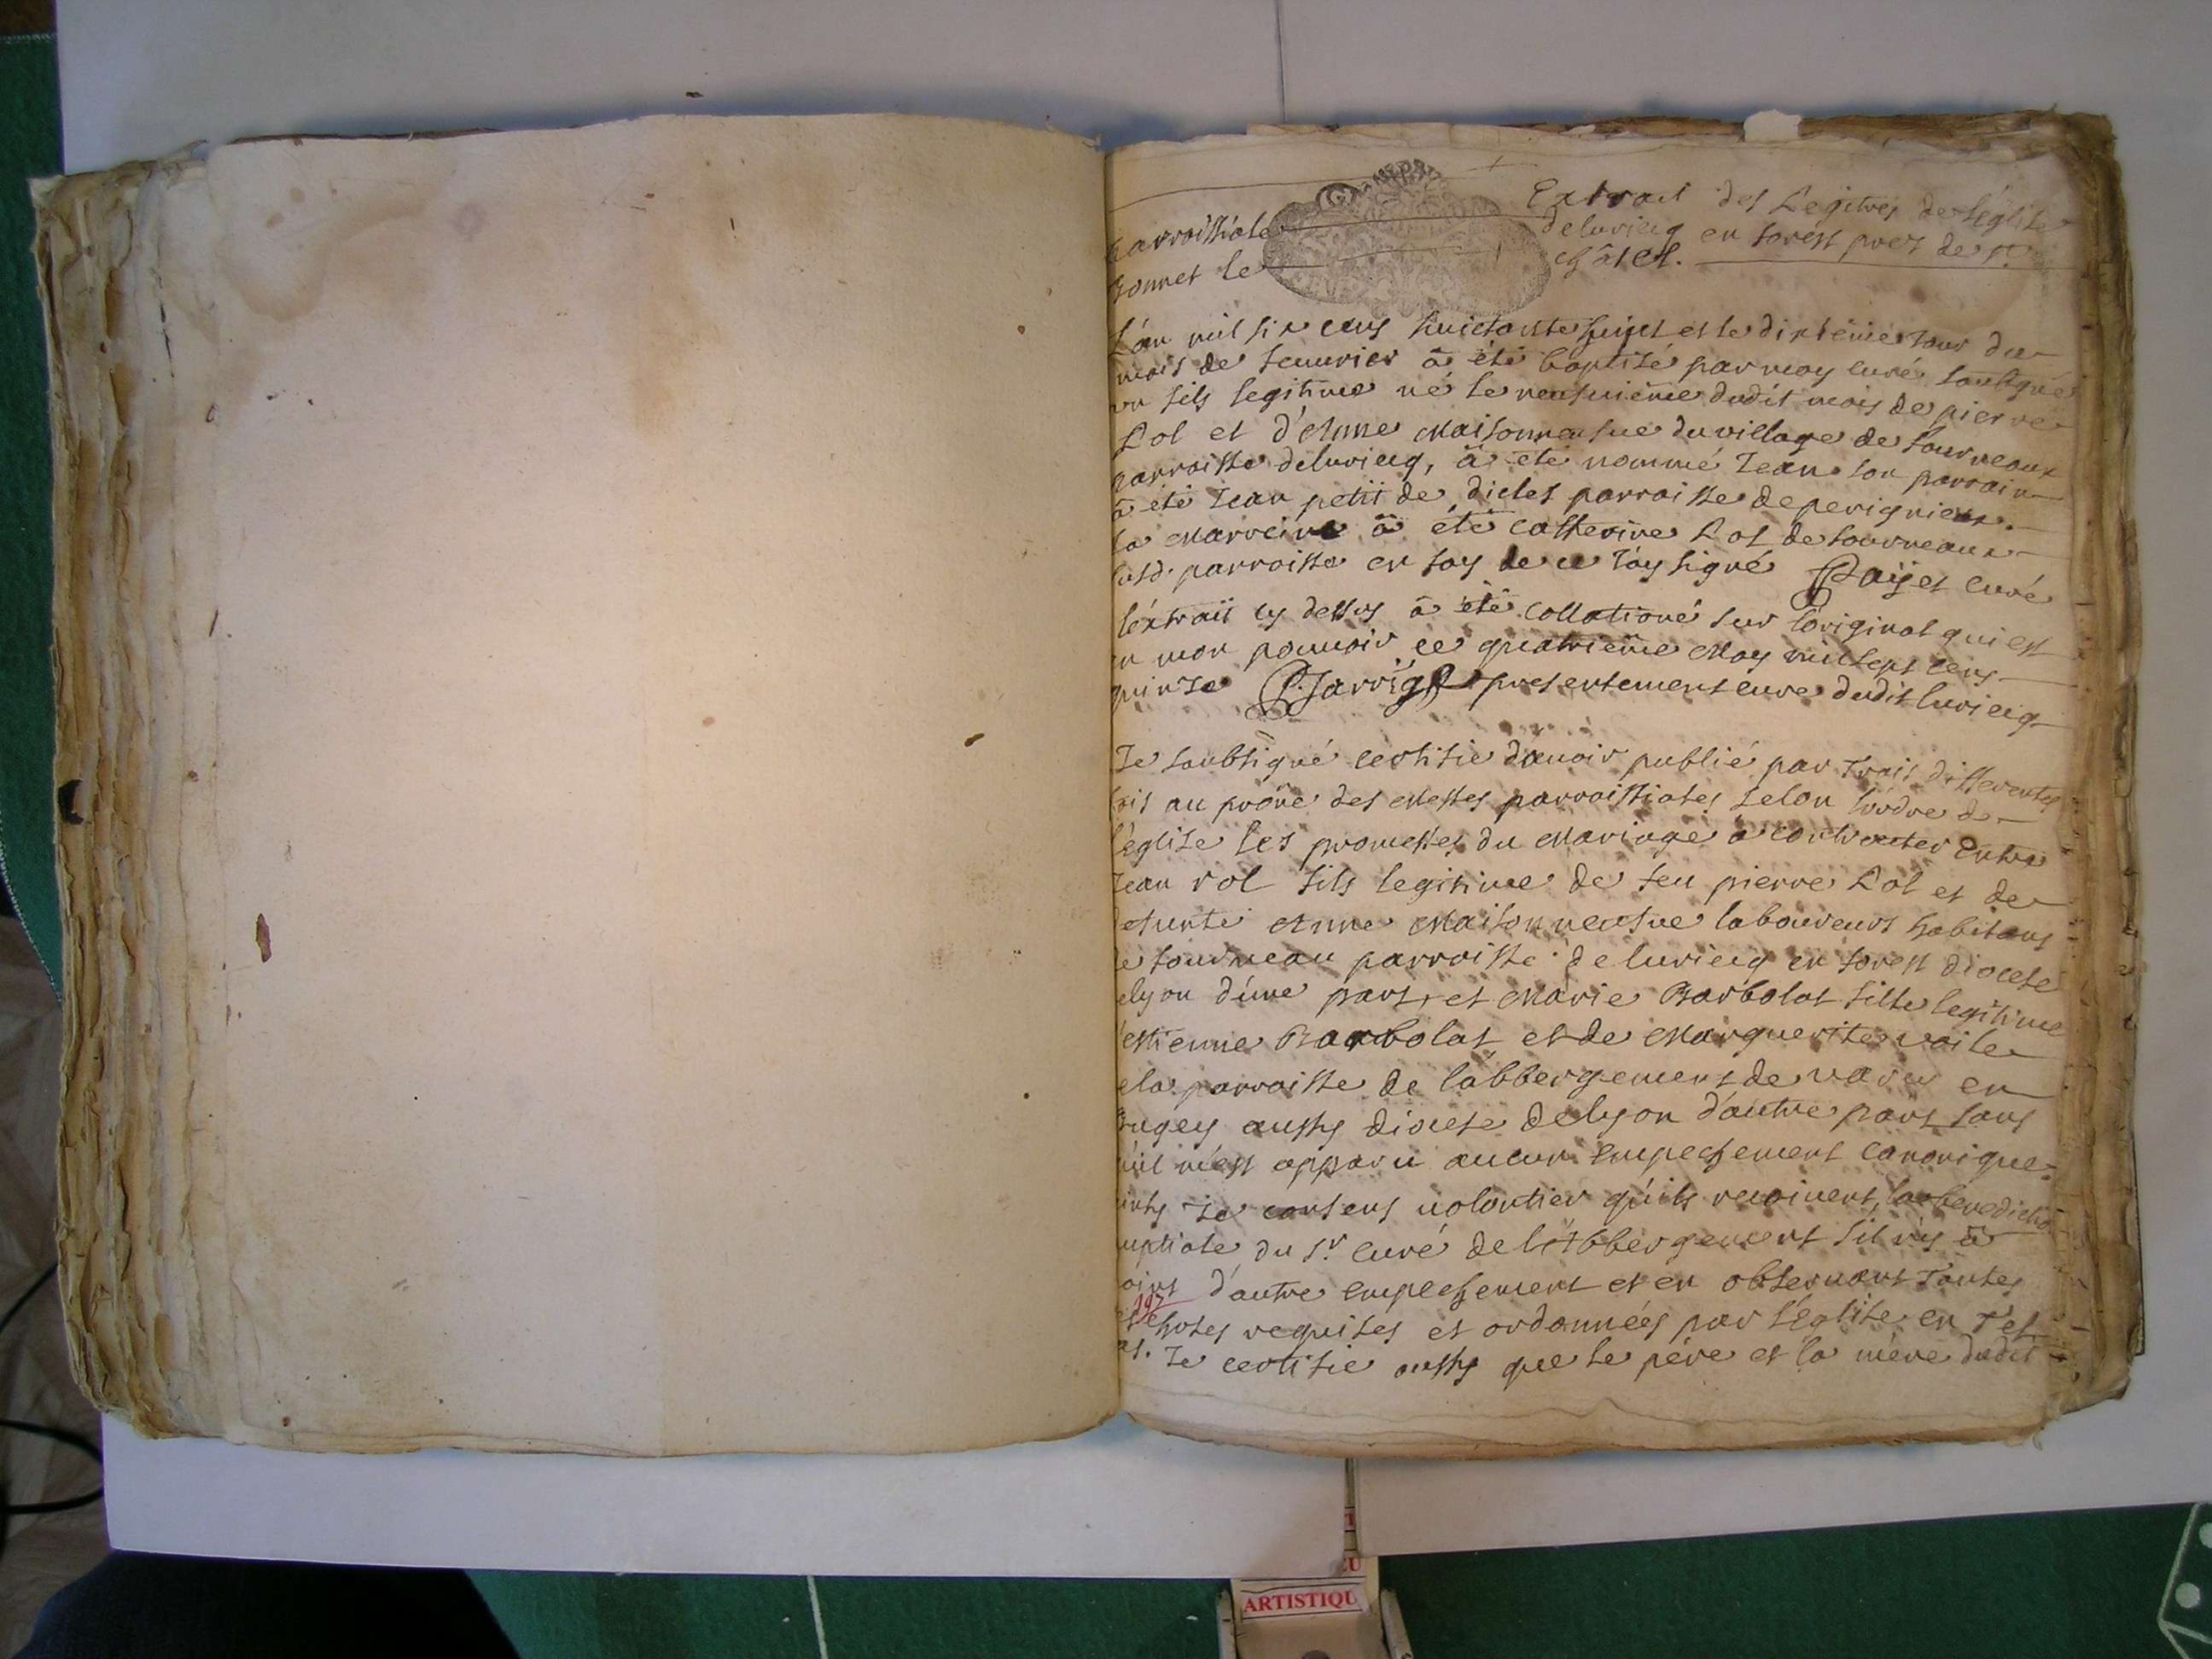 Extrait des Regitres de l'églize
parroissiale de luriecq en forest prez de st
bonnet le châtel.
L'an mil six cens huictante huict et le dixieme jour du
mois de feuurier a été baptisé par moy curé soubsigné
vn fils legitime né le neufuieme dudit mois de pierre
Rol et d'Anne Maisonneufue du village de fourneaux
parroisse de luriecq, à été nommé Jean son parrain
à été Jean petit de dicles parroisse de perignieux.
la Marreine à été catherine Rol de fourneaux
susd. parroisse en foy de ce j'ay signé Paÿet curé
l'éxtrait cy dessus à été collationé sur l'original qui est
en mon pouuoir ce quatrieme May mil sept cens
quinze Jarrige presentement curé dudit luriecq
Je soubsigné certifie d'auoir publié par trois differentes
fois au prône des Messes parroissiales selon l'ordre de
l'église les promesses du Mariage à contracter entre
Jean rol fils legitime de feu pierre Rol et de
defunte Anne Maisonneufue laboureurs habitans
de fourneau parroisse de luriecq en forest diocese
de lyon d'une part, et Marie Barbolat fille legitime
d'estienne Barbolat et de Marguerite
de la parroisse de l'abbergement de varey en
Bugey aussy diocese de lyon d'autre part sans
qu'il m'est apparu aucun empechement canonique
ainsy je consens uolontier qu'ils recoiuent la benedictio
nuptiale du sr. curé de l'Abbergement s'il n'y à
point d'autre empechement et en obseruant toutes
197
les choses requises et ordonnées par l'Eglise en tel
cas. Je certifie aussy que le pére et la mére dudit
ARTISTIQU